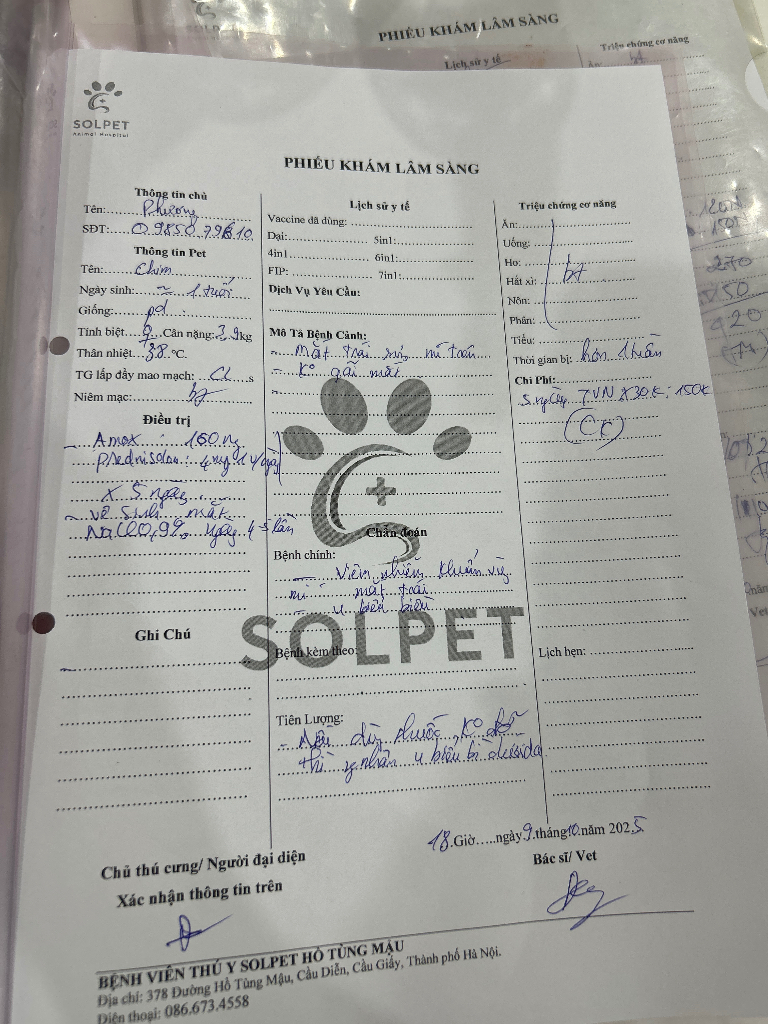 PHIẾU KHÁM LÂM SÀNG
Triệu chứng cơ năng
Lịch sử y tế
SOLPET
Animal Hospital
PHIẾU KHÁM LÂM SÀNG
Thông tin chủ
Tên: Phương
SĐT: 0985079810
Thông tin Pet
Tên: Chim
Ngày sinh: ≈ 1 tuổi
Giống: pd
Tính biệt ♀ Cân nặng: 3,9kg
Thân nhiệt 38 °C.
TG lấp đầy mao mạch: CL s
Niêm mạc: bt
Điều trị
- Amox : 160 mg
prednisolon: 4mg 1v/ngày
x 5 ngày
- vệ sinh mắt
NaCl 0,9% ngày 4-5 lần
Ghi Chú
Lịch sử y tế
Vaccine đã dùng:
Dại: 5in1:
4in1 6in1:
FIP: 7in1:
Dịch Vụ Yêu Cầu:
Mô Tả Bệnh Cảnh:
- mắt trái mí trên
- K° gãi mắt
Chẩn đoán
Bệnh chính:
- Viêm nhiễm khuẩn
mí mắt trái
- u biểu
SOLPET
Bệnh kèm theo:
Tiên Lượng:
- Nếu dùng thuốc K° đỡ
thì u biểu bì
Triệu chứng cơ năng
Ăn:
Uống:
Ho:
Hắt xì: bt
Nôn:
Phân:
Tiểu:
Thời gian bị: hơn 1 tuần
Chi Phí:
5 ngày TVN x30k: 150k
(CK)
Lịch hẹn:
18 Giờ.....ngày 9 tháng 10 năm 2025
Chủ thú cưng/ Người đại diện
Xác nhận thông tin trên
Bác sĩ/ Vet
BỆNH VIỆN THÚ Y SOLPET HỒ TÙNG MẬU
Địa chỉ: 378 Đường Hồ Tùng Mậu, Cầu Diễn, Cầu Giấy, Thành phố Hà Nội.
Điện thoại: 086.673.4558